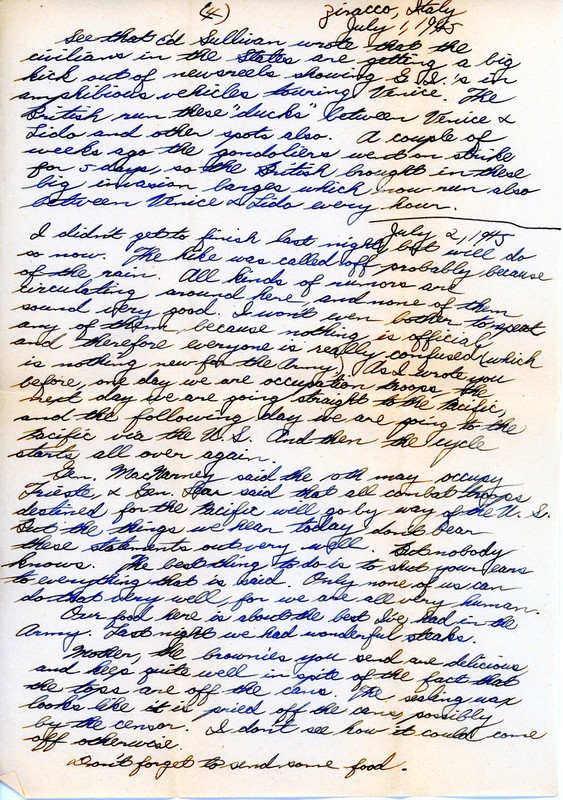 (4) Ziracco, Italy
July 1, 1945
See that Ed Sullivan wrote that the
civilians in the States are getting a big
kick out of newsreels showing G.I.'s in
amphibious vehicles touring Venice. The
British run these "ducks" between Venice &
Lido and other spots also. A couple of
weeks ago the gondoliers went on strike
for 5 days, so the British brought in these
big invasion barges which now run also
between Venice & Lido every hour.
July 2, 1945
I didn't get to finish last night, but will do
so now. The hike was called off probably because
of the rain. All kinds of rumors are
circulating around here and none of them
sound very good. I won't even bother to repeat
any of them because nothing is official
and therefore everyone is really confused (which
is nothing new for the Army). As I wrote you
before, one day we are occupation troops, the
next day we are going straight to the Pacific,
and the following day we are going to the
Pacific via the U.S. And then the cycle
starts all over again.
Gen. MacNarney said the 10th may occupy
Trieste, & Gen. said that all combat troops
destined for the Pacific will go by way of the U.S.
But the things we hear today don't bear
these statements out very well. But nobody
knows. The best thing to do is to shut your ears
to everything that is said. Only none of us can
do that very well, for we are all very human.
Our food here is about the best I've had in the
Army. Last night we had wonderful steaks.
Mother, the brownies you send are delicious
and keep quite well in spite of the fact that
the tops are off the cans. The sealing wax
looks like it is pried off the cans, possibly
by the censor. I don't see how it could come
off otherwise.
Don't forget to send some food.